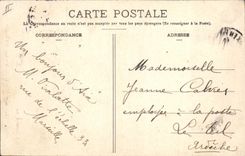 CARTE POSTALE
La correspondance au recto n'est pas acceptée par tous les pays étrangers (Se renseigner à la Poste)
CORRESPONDANCE
ADRESSE
Un bonjour d'
M Violette
rue de 32
Marseille
Mademoiselle
Jeanne
employée à la poste
Le Teil
Ardèche